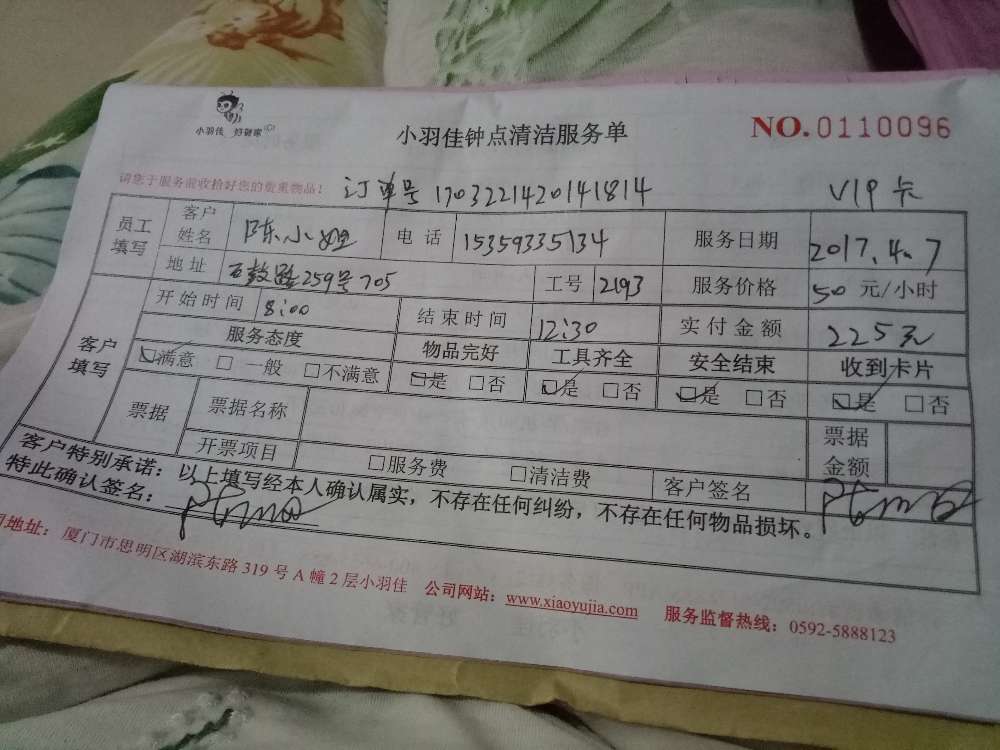 小羽佳 好管家
小羽佳钟点清洁服务单
NO.0110096
请您于服务前收拾好您的贵重物品！ 订单号 1703221420141814 VIP卡
员工填写 客户姓名 陈小姐 电话 15359335134 服务日期 2017.4.7
地址 石鼓路259号705 工号 2193 服务价格 50 元/小时
客户填写 开始时间 8:00 结束时间 12:30 实付金额 225元
服务态度 物品完好 工具齐全 安全结束 收到卡片
☑满意 □一般 □不满意 ☑是 □否 ☑是 □否 ☑是 □否 ☑是 □否
票据 票据名称 票据金额
开票项目 □服务费 □清洁费 客户签名
客户特别承诺：以上填写经本人确认属实，不存在任何纠纷，不存在任何物品损坏。
特此确认签名：
司地址：厦门市思明区湖滨东路319号A幢2层小羽佳 公司网站：www.xiaoyujia.com 服务监督热线：0592-5888123